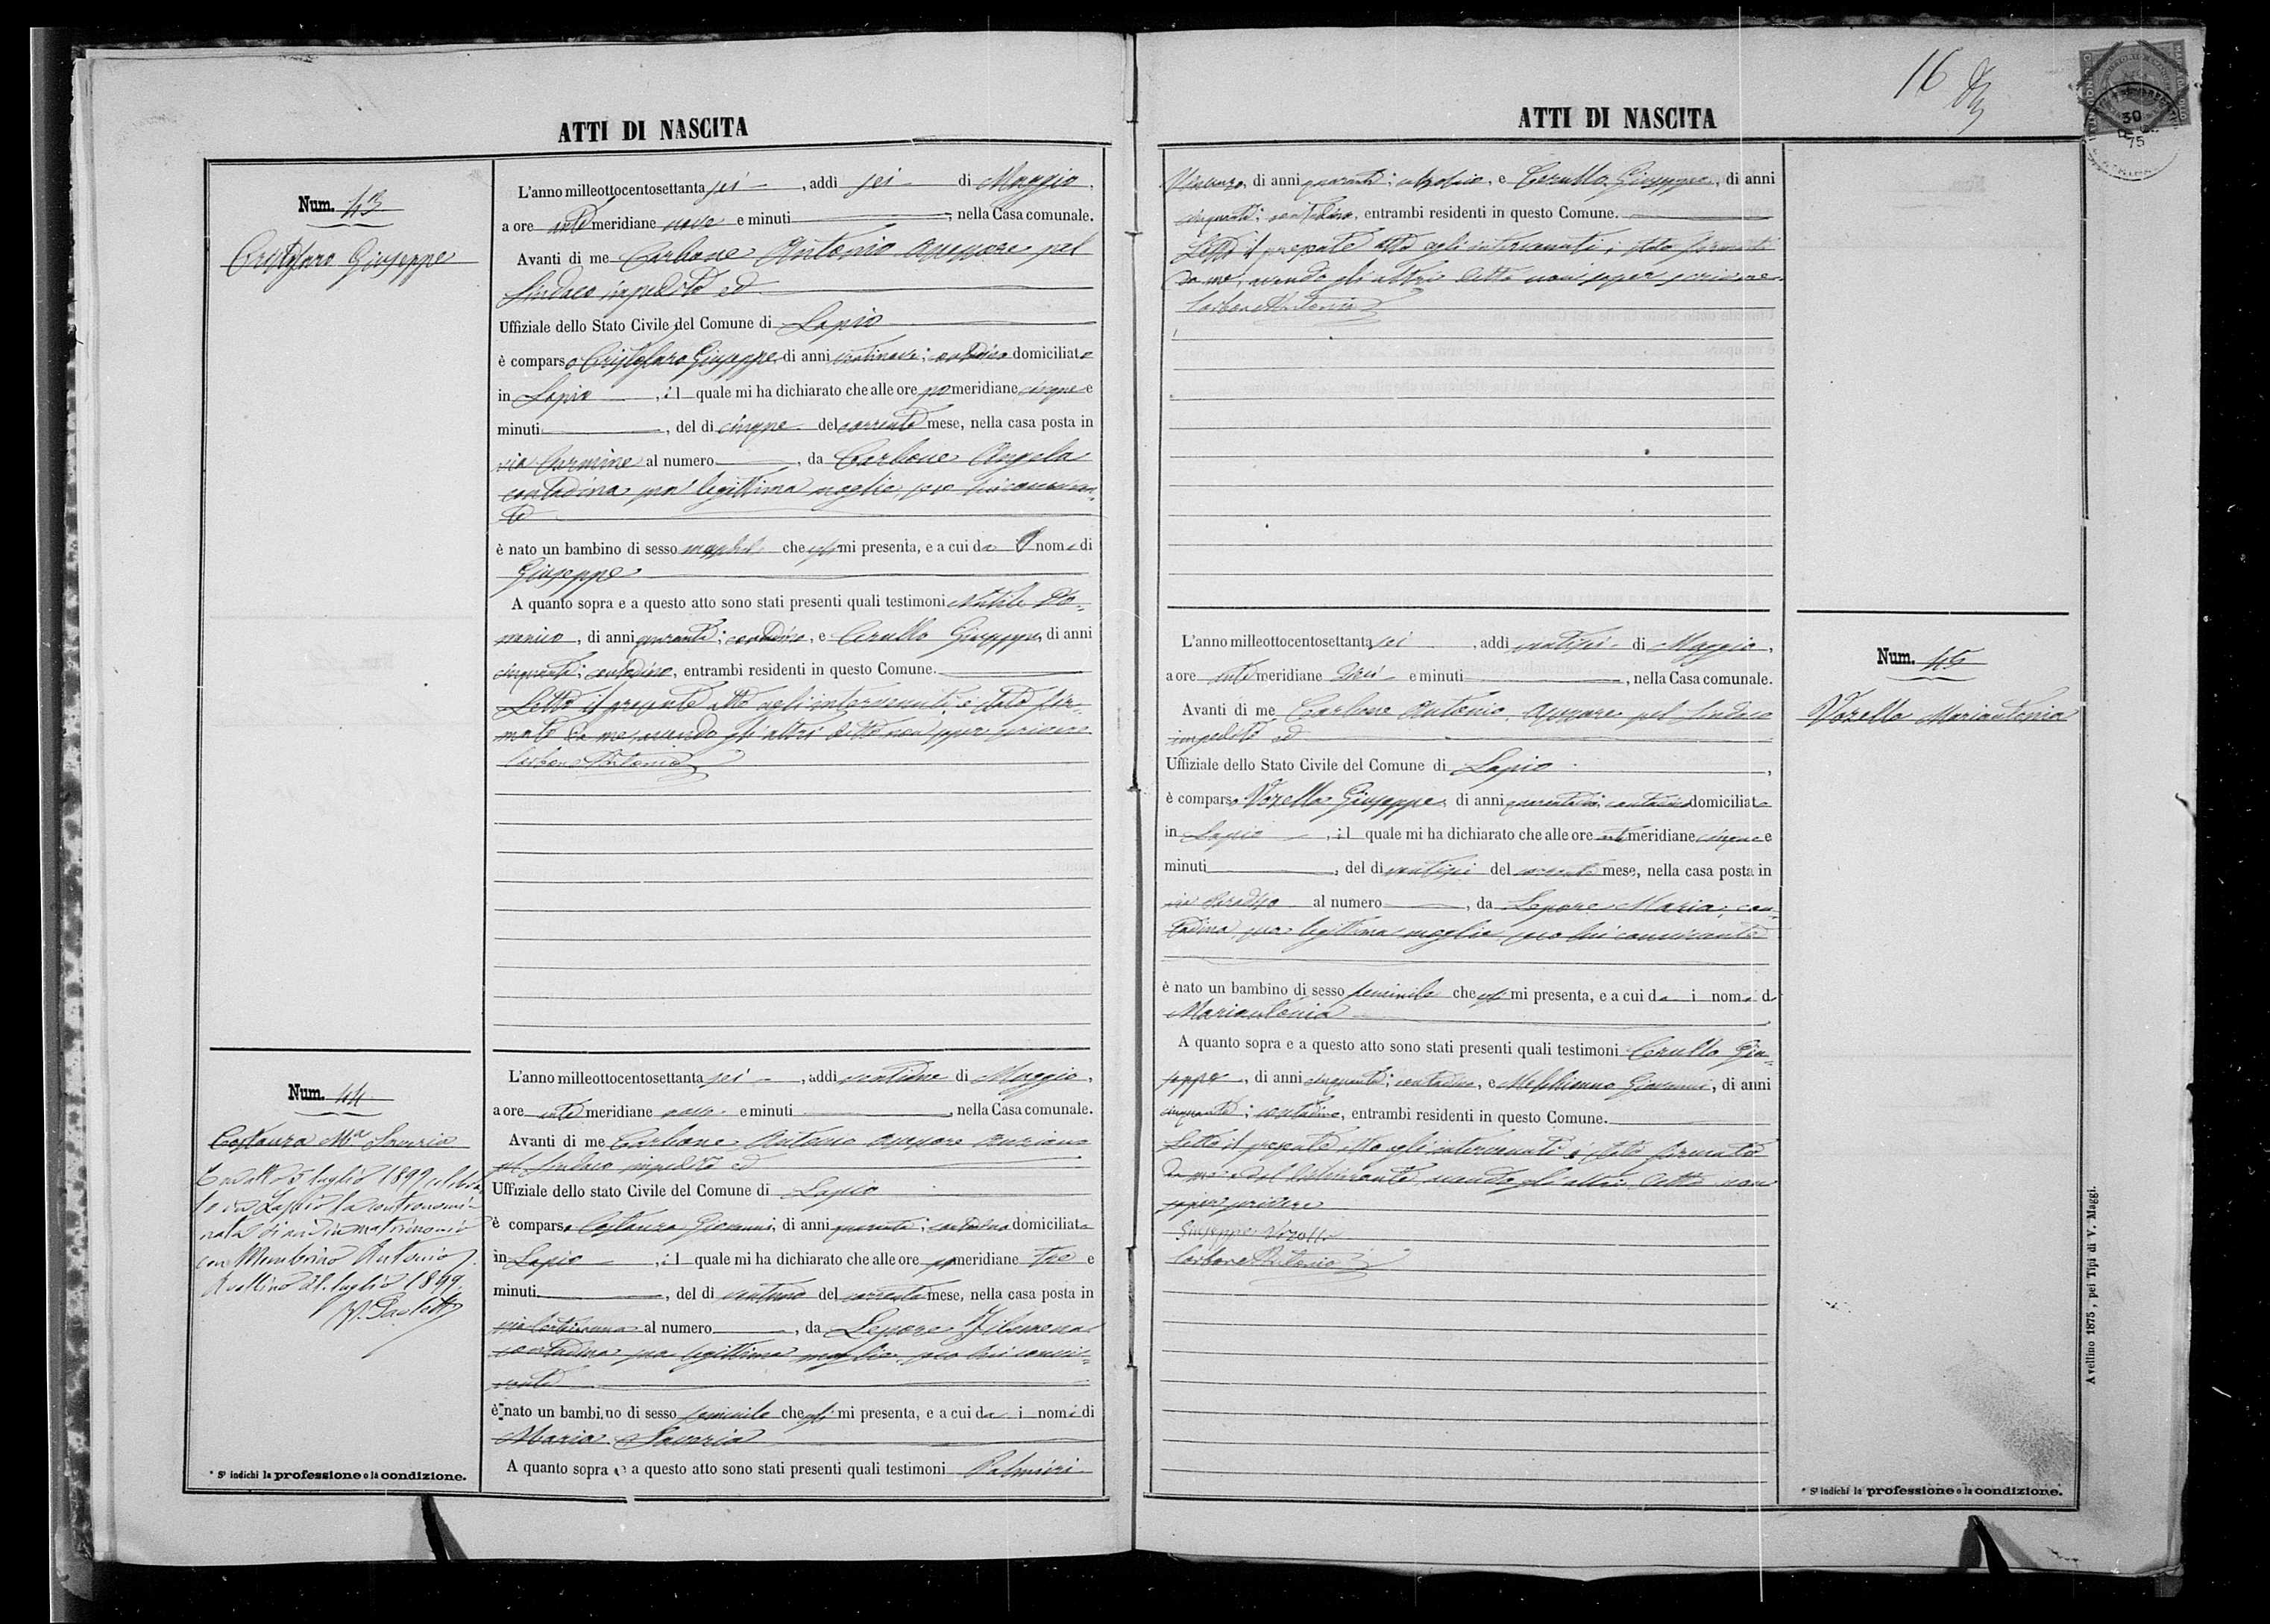 ATTI DI NASCITA
Num. 43
Cristofaro Giuseppe
L'anno milleottocentosettanta sei, addi sei di Maggio,
a ore ante meridiane nove e minuti, nella Casa comunale.
Avanti di me Carbone Antonio Assessore pel
Sindaco impedito ed
Uffiziale dello Stato Civile del Comune di Lapio
è comparso Cristofaro Giuseppe, di anni ventinove; contadino domiciliato
in Lapio, il quale mi ha dichiarato che alle ore po meridiane cinque e
minuti, del di cinque del corrente mese, nella casa posta in
via Carmine al numero, da Carbone Angela
contadina sua legittima moglie, seco lui conviven-
te
è nato un bambino di sesso maschile che egli mi presenta, e a cui da il nome di
Giuseppe
A quanto sopra e a questo atto sono stati presenti quali testimoni Do-
menico, di anni quaranta; contadino, e Cerullo Giuseppe, di anni
cinquanta; contadino, entrambi residenti in questo Comune.
Letto il presente atto agli intervenuti, è stato fir-
mato da me, avendo gli altri detto non saper scrivere
Carbone Antonio
Num. 44
Costanza Ma Saveria
L'anno milleottocentosettanta sei, addi ventidue di Maggio,
a ore ante meridiane nove e minuti, nella Casa comunale.
Avanti di me Carbone Antonio Assessore Anziano
pel Sindaco impedito ed
Uffiziale dello stato Civile del Comune di Lapio
è comparso Costanza Giovanni, di anni quaranta; contadino domiciliato
in Lapio, il quale mi ha dichiarato che alle ore po meridiane tre e
minuti, del di ventuno del corrente mese, nella casa posta in
via al numero, da Lepore Filomena
contadina sua legittima moglie, seco lui convi-
vente
è nato un bambino di sesso feminile che egli mi presenta, e a cui da i nomi di
Maria Saveria
A quanto sopra e a questo atto sono stati presenti quali testimoni Palmieri
Con atto 5 luglio 1899 celebra-
to in Lapio la contronomi-
nata si unì in matrimonio
con Antonio.
Avellino 21 luglio 1899.
* Si indichi la professione o la condizione.
16
ATTI DI NASCITA
30
75
Vincenzo, di anni quaranta; calzolaio, e Cerullo Giuseppe, di anni
cinquanta; contadino, entrambi residenti in questo Comune.
Letto il presente atto agli intervenuti, è stato firmato
da me, avendo gli altri detto non saper scrivere
Carbone Antonio
L'anno milleottocentosettanta sei, addi ventisei di Maggio,
a ore ante meridiane dieci e minuti, nella Casa comunale.
Avanti di me Carbone Antonio, Assessore pel Sindaco
impedito ed
Uffiziale dello Stato Civile del Comune di Lapio,
è comparso Vozella Giuseppe, di anni contadino domiciliato
in Lapio, il quale mi ha dichiarato che alle ore ante meridiane cinque e
minuti, del di ventisei del corrente mese, nella casa posta in
via Paradiso al numero, da Lepore Maria, con-
tadina sua legittima moglie, seco lui convivente
è nato un bambino di sesso feminile che egli mi presenta, e a cui da i nomi di
Mariantonia
A quanto sopra e a questo atto sono stati presenti quali testimoni Cerullo Giu-
seppe, di anni cinquanta; contadino, e Giovanni, di anni
cinquanta; contadino, entrambi residenti in questo Comune.
Letto il presente atto agli intervenuti è stato firmato
da me e dal dichiarante, avendo gli altri detto non
saper scrivere
Giuseppe Vozella
Carbone Antonio
Num. 45
Vozella Mariantonia
* Si indichi la professione o la condizione.
Avellino 1875, pei Tipi di V. Maggi.